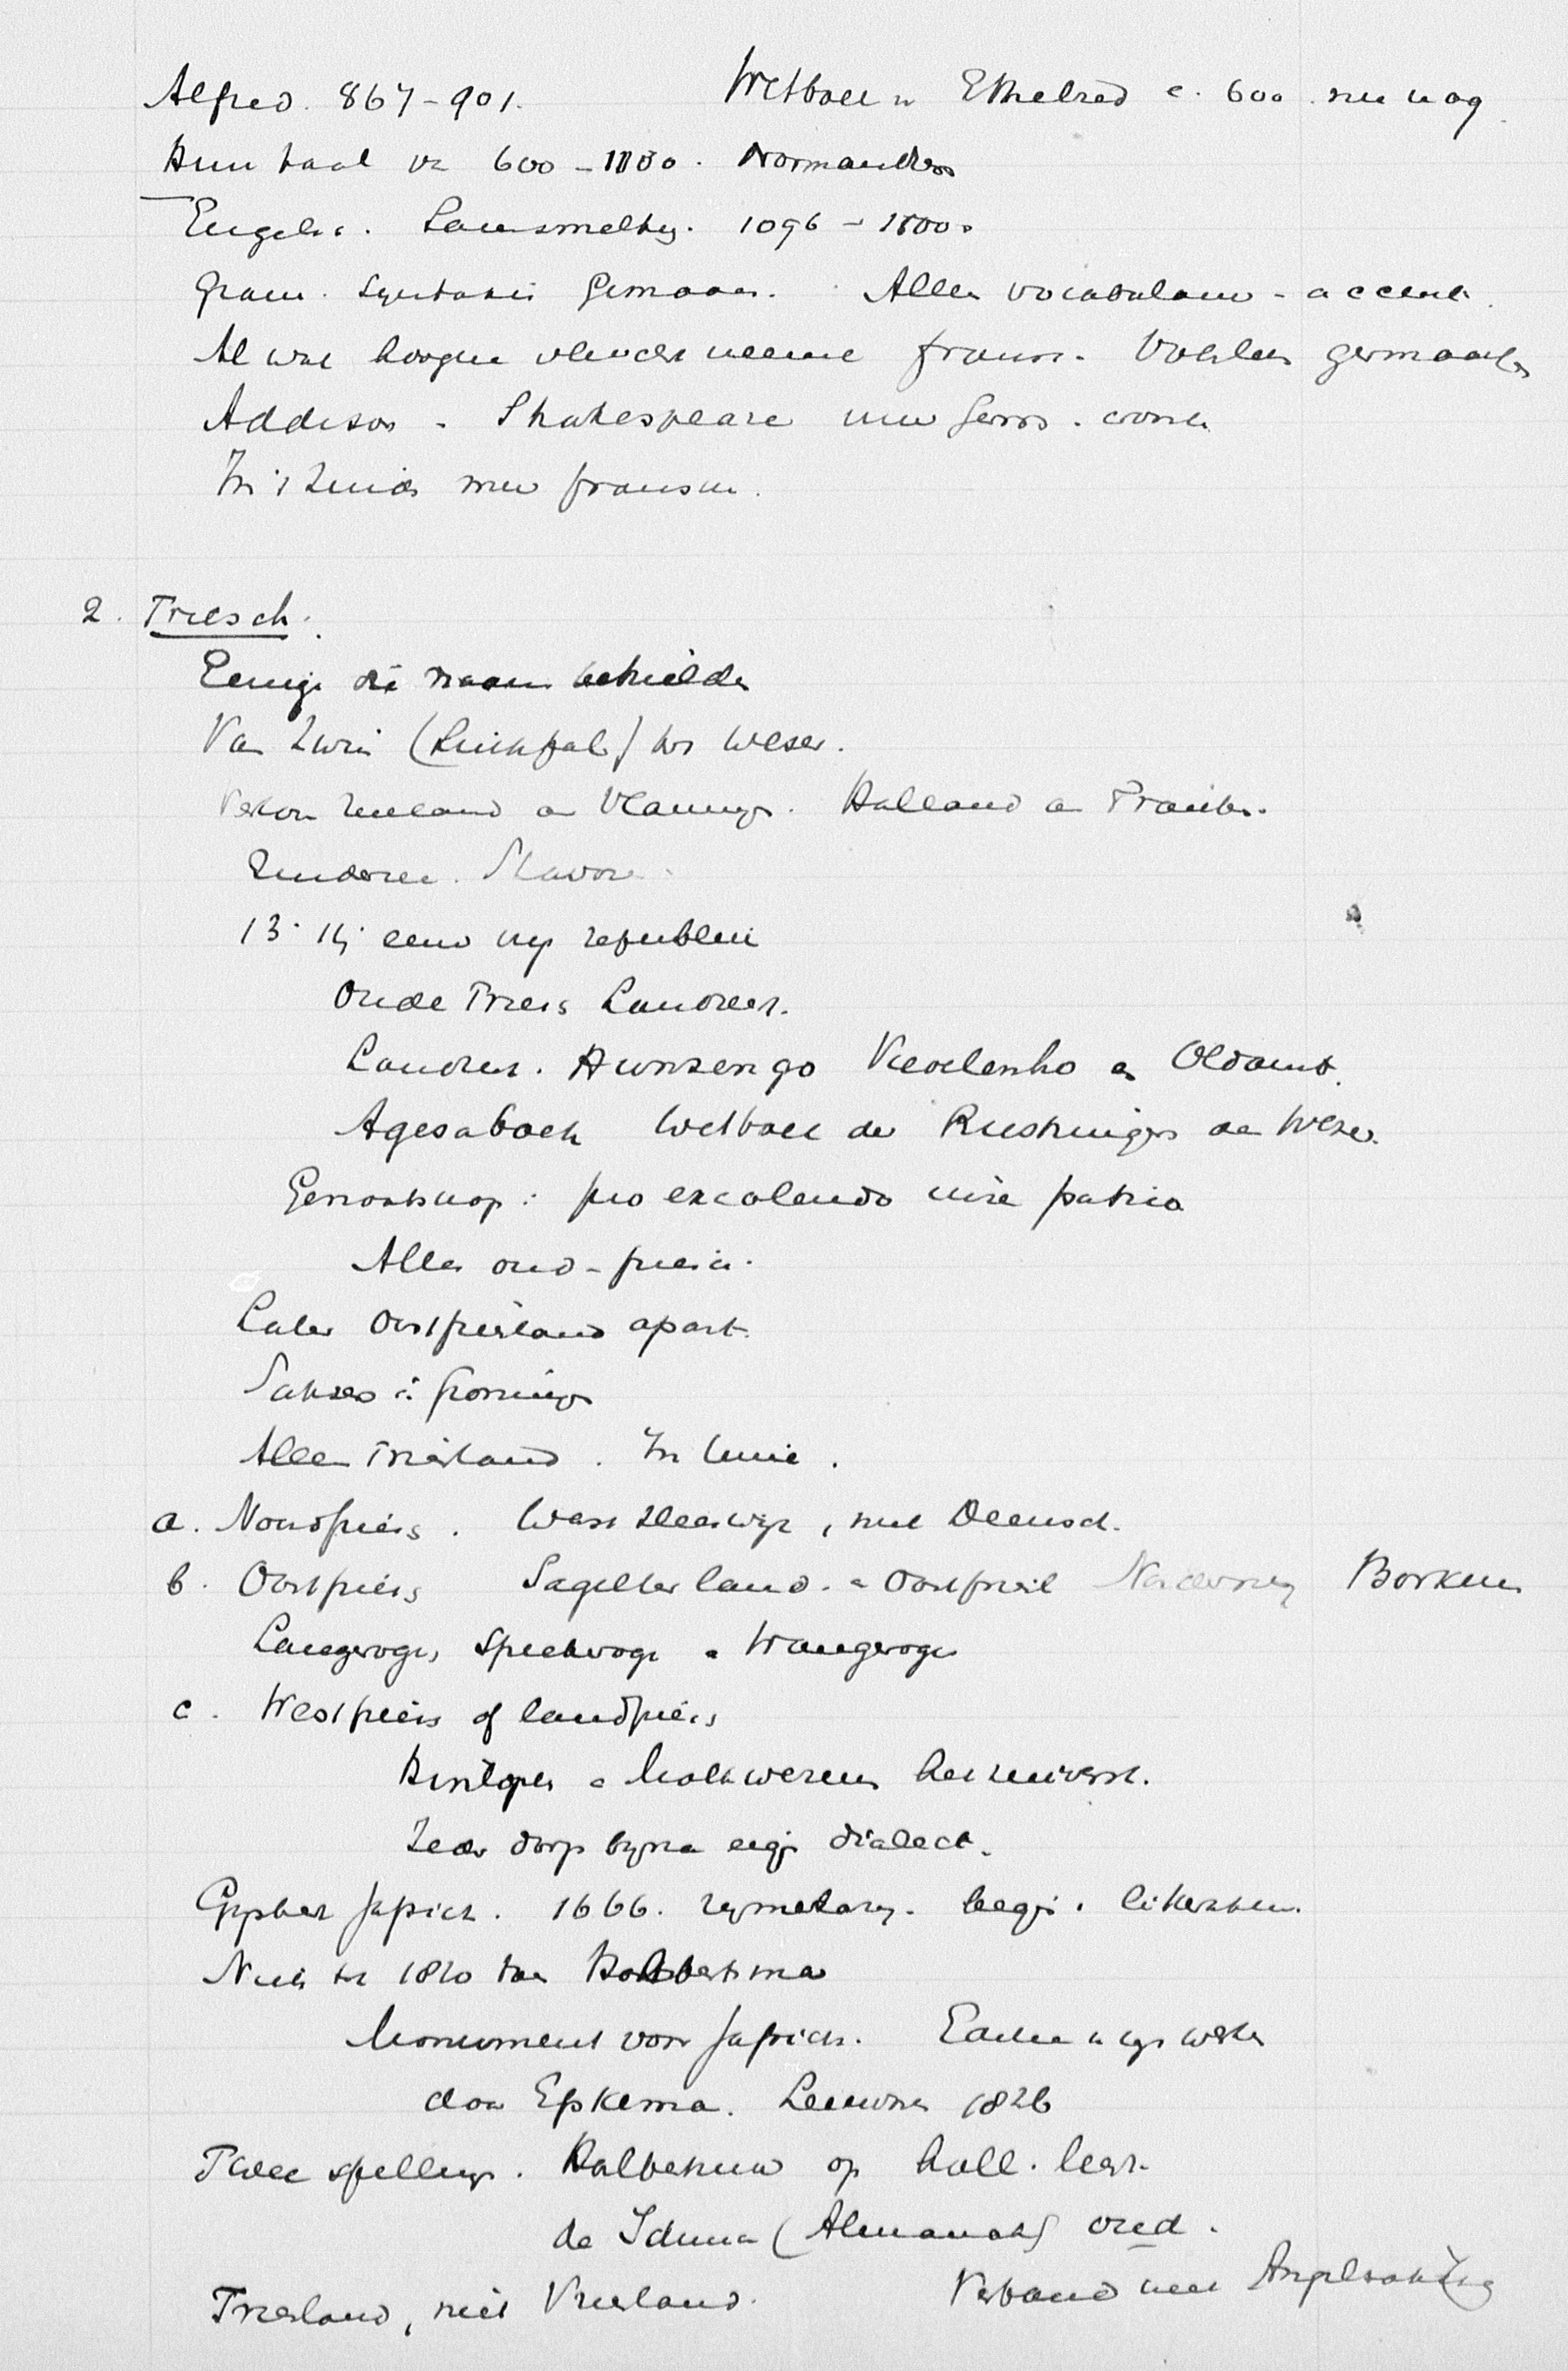 Alfred. 867-901. Wetboek v Ethelred c. 600. nu nog
Hun taal va 600-1100. Normanders
Engels. Saamsmelting. 1096 - 1500.
Gram. Syntaxis Germaans. Alleen vocabulair - accent.
Al wat hoogere fransch. Volkstaal germaansch
Addison - Shakespeare meer germ. woorden
In 't Zuiden meer fransch.
2. Friesch.
Eenige die naam behielden
Van Zwin (Sinkfal) tot Weser.
Zeeland en Vlaming. Holland en Franken.
Zuiderzee. Stavoren.
13. 14. eeuw vrije republiek
Oude Fries Landrecht.
Landrecht. Hunsengo Vredenho en Oldamt.
Agesaboek Wetboek der Rustringers aan Weser.
Genootschap: pro excolendo iure patrio
Alles oud-friesch.
Later Oostfriesland apart.
Saksers in Groningen
Alleen Friesland.
a. Noordfries. West Sleeswijk, met Deensch.
b. Oostfries Sagelterland. en Oostfriesl Norderney Borkum
Langeroge, Spiekeroge en Wangeroge
c. Westfries of landfries
Hindlopen en Molkwerum het zuiverst.
Ieder dorp bijna eigen dialect.
Gysbert Japicx. 1666. rijmelary. begin literatuur.
Niets tot 1820 toen Halbertsma
Monument voor Japicx. Editie v zijn werken
door Epkema. Leeuwarden 1826
Twee spellingen. Halbertsma op holl. leest.
de Iduna (Almanak) oud.
Friesland, niet Vriesland. Verband met Angelsaksisch